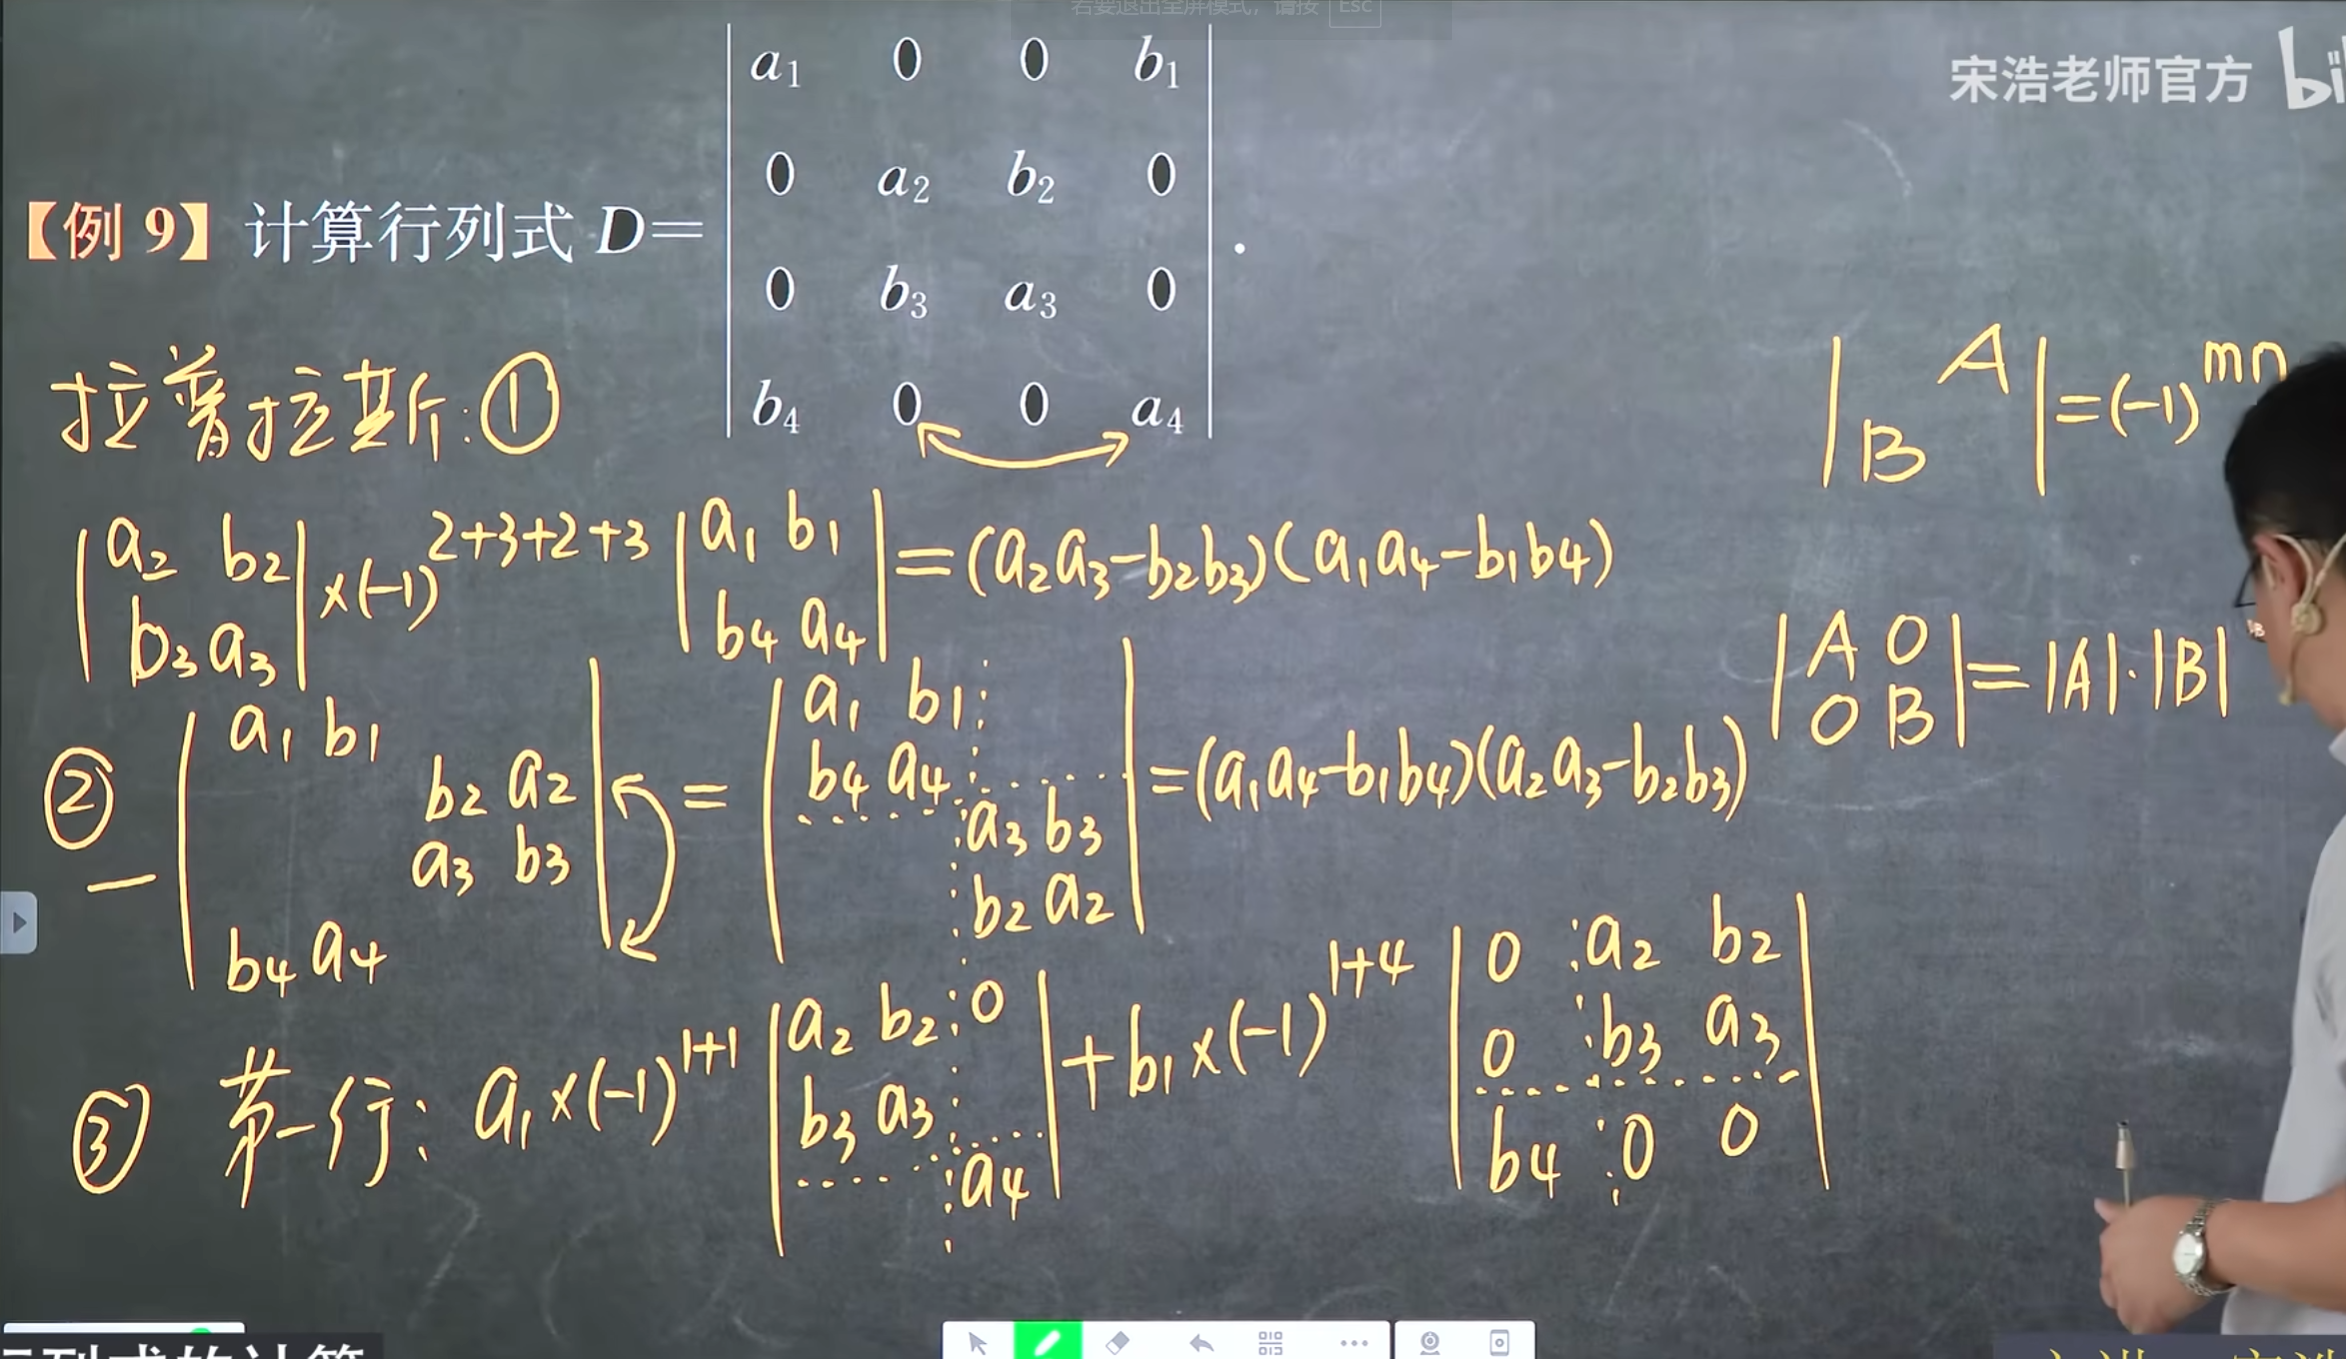 若要退出全屏模式，请按 Esc
宋浩老师官方 bi
【例 9】 计算行列式 D=
a₁ 0 0 b₁
0 a₂ b₂ 0
0 b₃ a₃ 0
b₄ 0 0 a₄
.
拉普拉斯:①
| A|
|B | = (-1)^mn
|a₂ b₂|
|b₃ a₃| ×(-1)^2+3+2+3 |a₁ b₁|
|b₄ a₄| = (a₂a₃-b₂b₃)(a₁a₄-b₁b₄)
|A 0|
|0 B| = |A|·|B|
② -
a₁ b₁
b₂ a₂
a₃ b₃
b₄ a₄
=
a₁ b₁
b₄ a₄
a₃ b₃
b₂ a₂
= (a₁a₄-b₁b₄)(a₂a₃-b₂b₃)
③ 第一行: a₁×(-1)^1+1
a₂ b₂ 0
b₃ a₃
a₄
+b₁×(-1)^1+4
0 a₂ b₂
0 b₃ a₃
b₄ 0 0
列式的计算